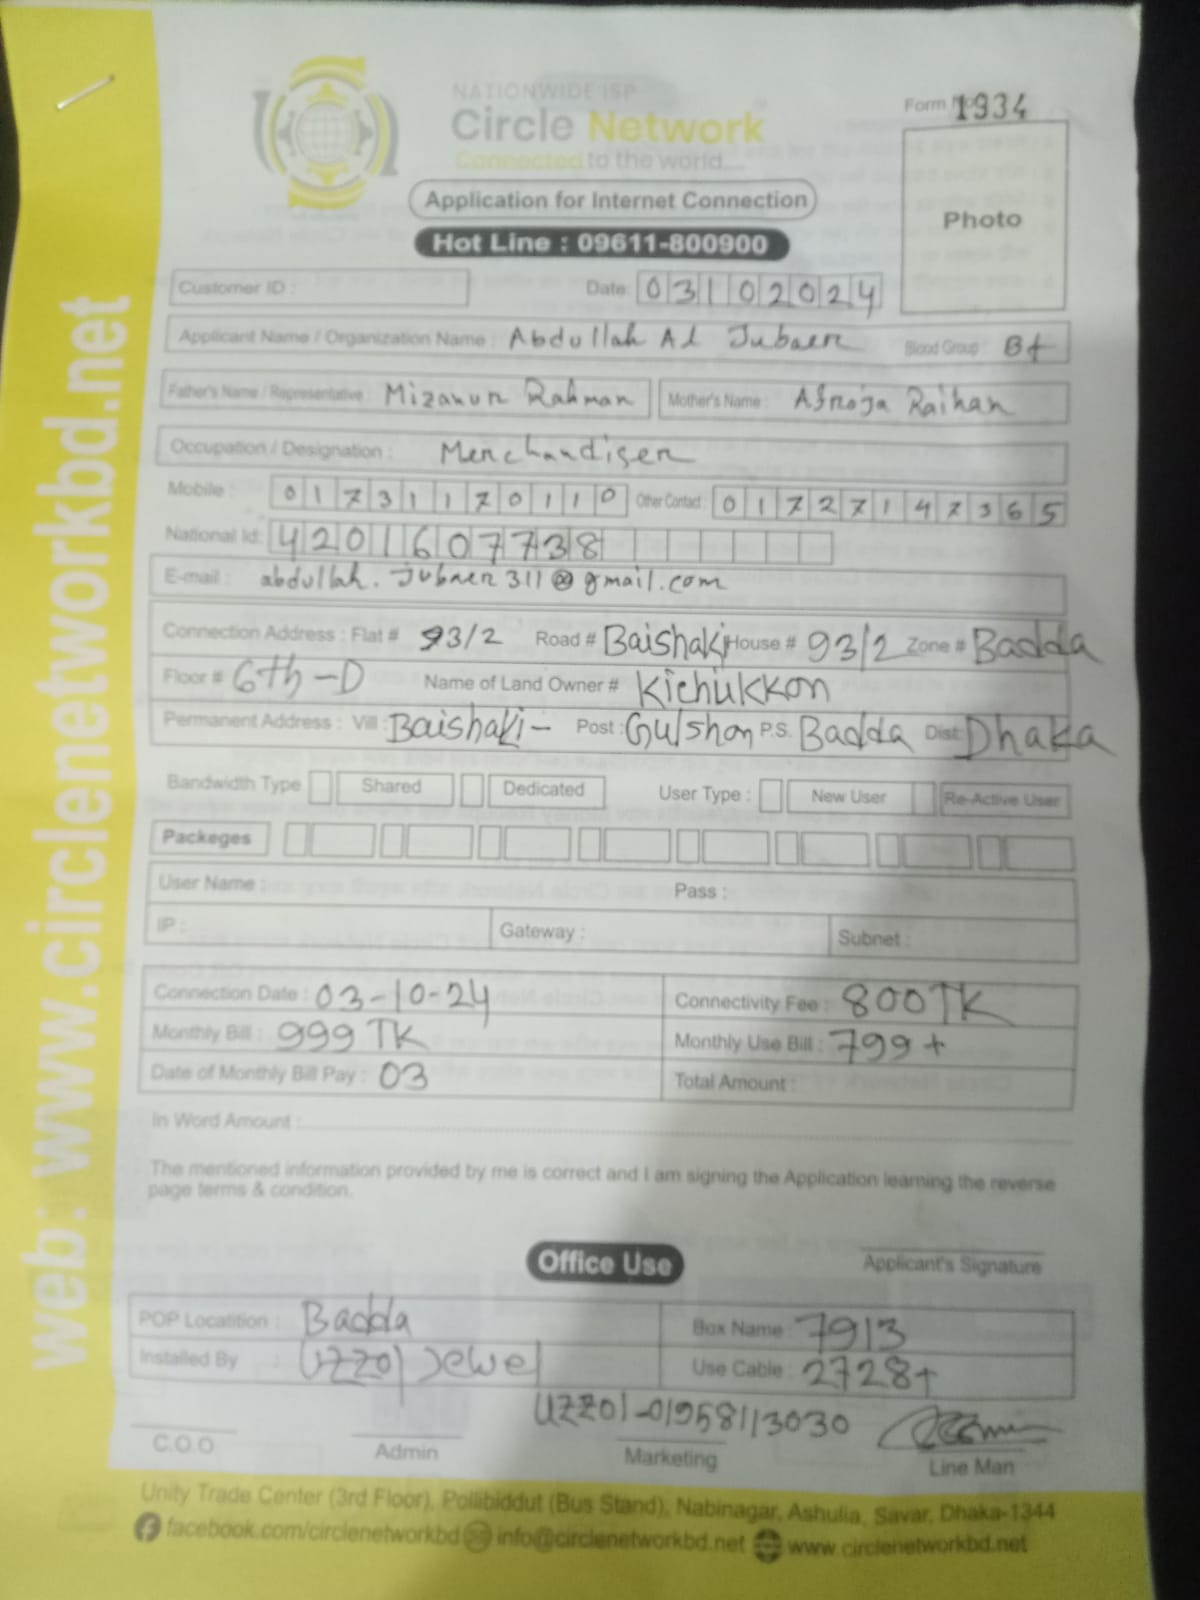 web: www.circlenetworkbd.net
NATIONWIDE ISP
Circle Network
Connected to the world....
Form No 1934
Photo
Application for Internet Connection
Hot Line : 09611-800900
Customer ID :
Date: 03102024
Applicant Name / Organization Name : Abdullah Al Jubaer Blood Group : B+
Father's Name / Representative : Mizanur Rahman Mother's Name : Afroja Raihan
Occupation / Designation : Merchandiser
Mobile : 01731170110 Other Contact : 01727147365
National Id: 4201607738
E-mail : abdullah.jubaer311@gmail.com
Connection Address : Flat # 93/2 Road # Baishaki House # 93/2 Zone # Badda
Floor # 6th-D Name of Land Owner # Kichukkon
Permanent Address : Vill : Baishaki- Post : Gulshan P.S. Badda Dist: Dhaka
Bandwidth Type Shared Dedicated User Type : New User Re-Active User
Packeges
User Name : Pass :
IP : Gateway : Subnet :
Connection Date : 03-10-24 Connectivity Fee : 800TK
Monthly Bill : 999 TK Monthly Use Bill : 799+
Date of Monthly Bill Pay : 03 Total Amount :
In Word Amount :
The mentioned information provided by me is correct and I am signing the Application learning the reverse
page terms & condition.
Office Use
Applicant's Signature
POP Locatition : Badda Box Name : 7913
Installed By : Uzzol Jewel Use Cable : 2728+
Uzzol-01958113030
C.O.O Admin Marketing Line Man
Unity Trade Center (3rd Floor), Pollibiddut (Bus Stand), Nabinagar, Ashulia, Savar, Dhaka-1344
facebook.com/circlenetworkbd info@circlenetworkbd.net www.circlenetworkbd.net